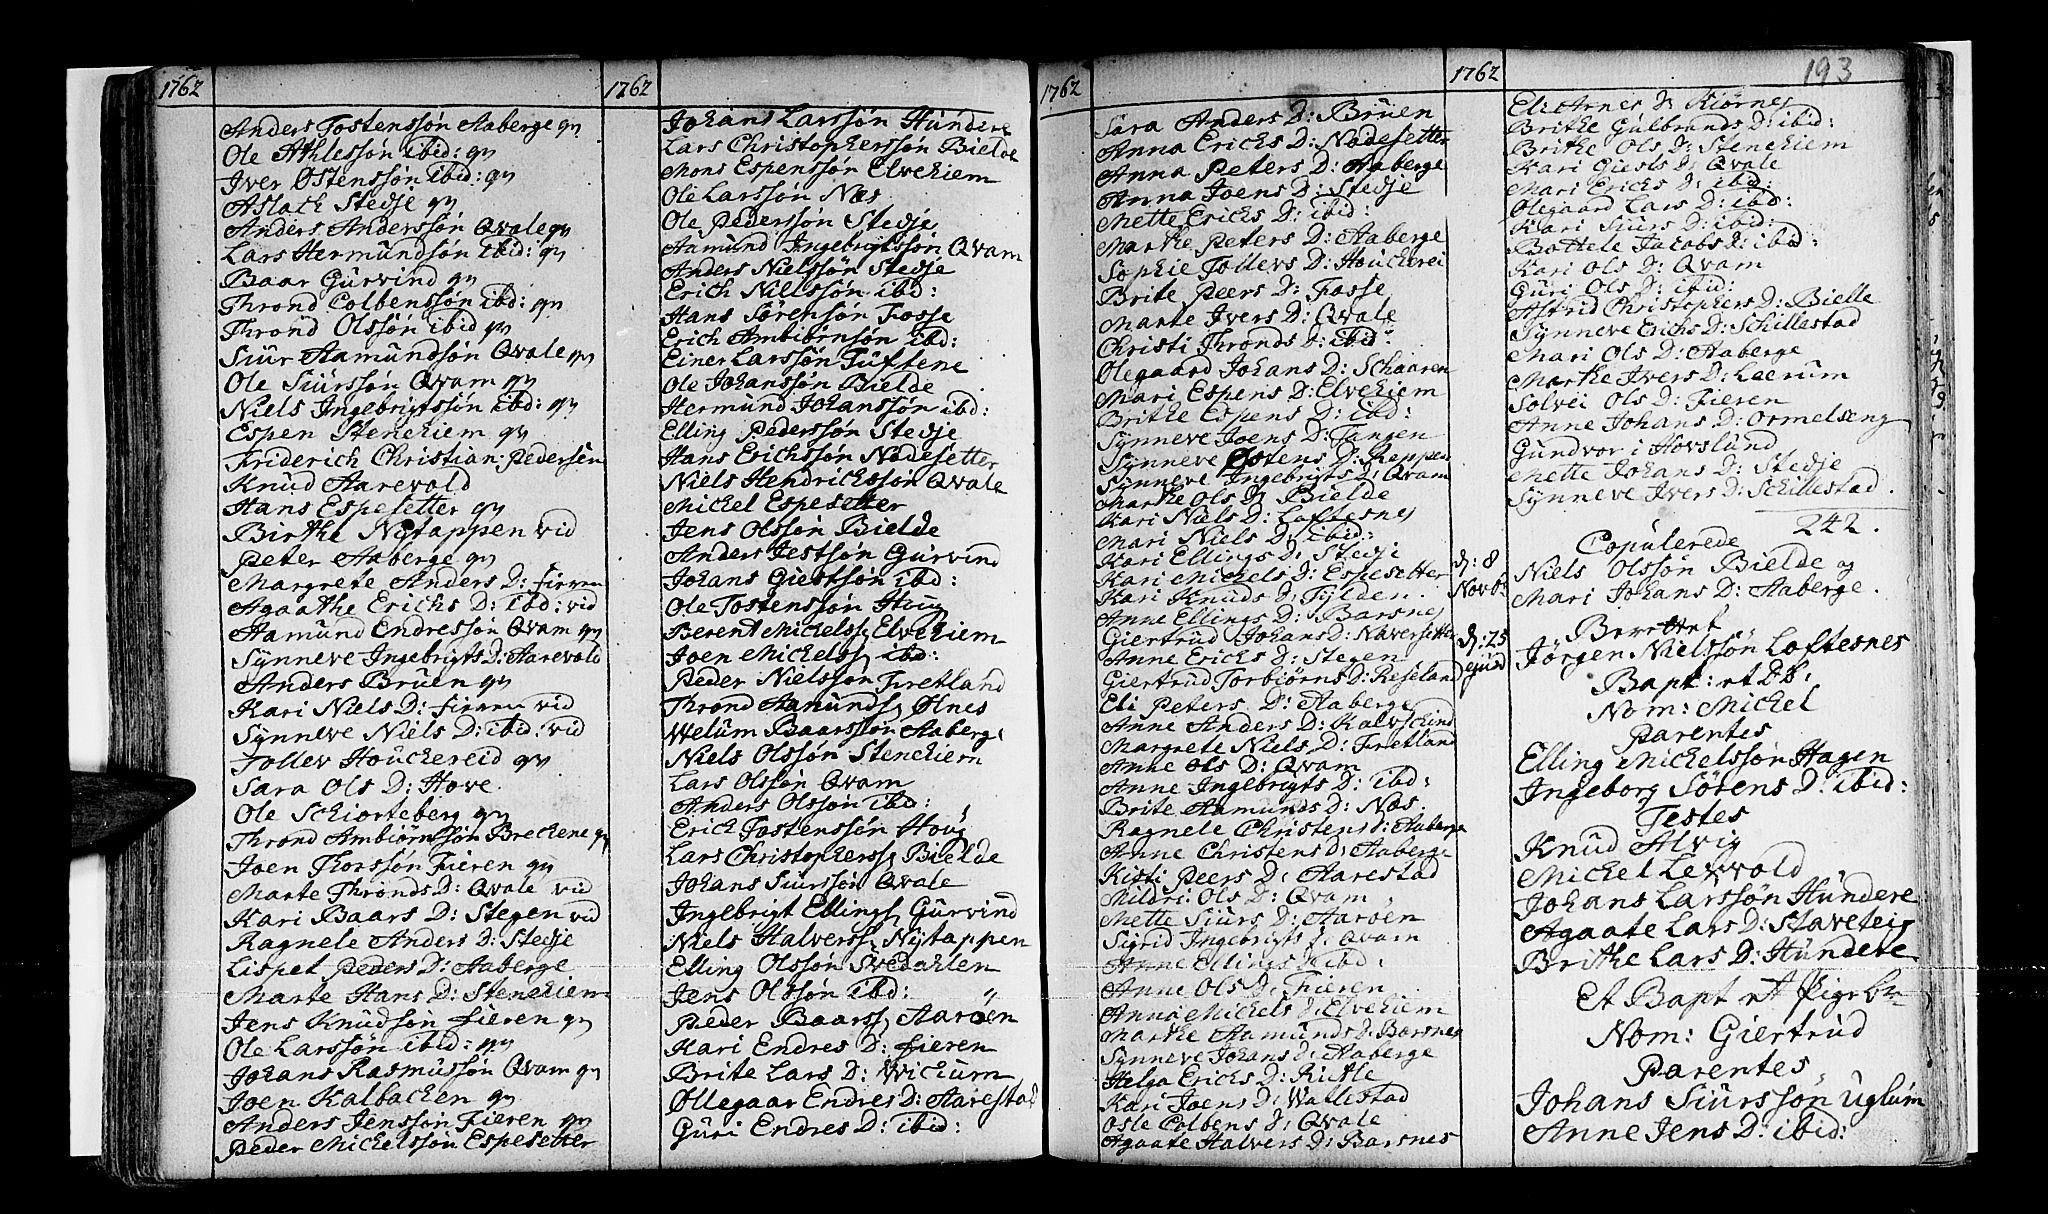 1762
Anders Tostenssøn Aaberge qv
Ole Athlessøn ibid: qv
Iver Østenssøn ibid: qv
Aslach Stedje qv
Anders Anderssøn Qvale qv
Lars Hermundsøn ibid: qv
Baar Gurvind qv
Thrond Colbenssøn ibd: qv
Thrond Olssøn ibid qv
Siur Aamundsøn Qvale qv
Ole Siurssøn Qvam qv
Niels Ingebrigtssøn ibd: qv
Espen Stenehiem qv
Friderich Christian Pedersen
Knud Aarevold
Hans Espesetter qv
Birthe Nÿtappen vid
Peter Aaberge qv
Margrete Anders D: Fieren
Agaathe Erichs D: ibd: vid
Aamund Endressøn Qvam qv
Sÿnneve Ingebrigts D: Aarevold
Anders Bruen qv
Kari Niels D: Fieren vid
Sÿnneve Niels D: ibid: vid
Tollev Houchereid qv
Sara Ols D: Hove
Ole Schiorteberg qv
Thrond Ambiørnssøn Brechene qv
Joen Thorssøn Fieren qv
Marte Thronds D: Qvale vid
Kari Baars D: Stegen vid
Ragnele Anders D: Stedje
Lispet Peders D: Aaberge
Marte Hans D: Stenehiem
Jens Knudsøn Fieren qv
Ole Larssøn ibid: qv
Johans Rasmussøn Qvam qv
Joen Kalbachen qv
Anders Jenssøn Fieren qv
Peder Michelssøn Espesetter
1762
Johans Larssøn Hundere
Lars Christopherssøn Bielde
Mons Espenssøn Elvehiem
Ole Larssøn Næs
Ole Pederssøn Stedje
Aamund Ingebrigtssøn Qvam
Anders Nielssøn Stedje
Erich Nielssøn ibd:
Hans Sørensøn Fosse
Erich Ambiørnsøn ibd:
Einer Larssøn Tuftene
Ole Johanssøn Bielde
Hermund Johanssøn ibd:
Elling Pederssøn Stedje
Hans Erichssøn Nodesetter
Niels Hendrichssøn Qvale
Michel Espesetter
Jens Olssøn Bielde
Anders Jestsøn Gurvind
Johans Giestsøn ibd:
Ole Tostenssøn Hug
Berent Michelss: Elvehiem
Joen Michelss: ibd:
Peder Nielssøn Fretland
Thrond Aamunds: Ølnes
Welum Baarssøn Aaberge
Niels Olssøn Stenehiem
Lars Olssøn Qvam
Anders Olssøn ibd:
Erich Tostenssøn Hovg
Lars Christopherss: Bielde
Johans Siurssøn Qvale
Ingebrigt Ellings: Gurvind
Niels Halverss: Nÿtappen
Elling Olssøn Svedahlen
Jens Olssøn ibd:
Peder Baarss: Aarøen
Kari Endres D: Fieren
Brite Lars D: Wichum
Øllegaar Endres D: Aarestad
Guri Endres D: ibid:
1762
Sara Anders D: Bruen
Anna Erichs D: Nodesetter
Anna Peters D: Aaberge
Anna Joens D: Stedje
Mette Erichs D: ibid:
Marthe Peters D: Aaberge
Sophie Tollevs D: Houcherei
Brite Peers D: Fosse
Marte Ivers D: Qvale
Christi Thronds D: ibid:
Olegaard Johans D: Schaaren
Mari Espens D: Elvehiem
Brithe Espens D: ibd:
Sÿnneve Joens D: Tangen
Sÿnneve Østens D: Reppen
Sÿnneve Ingebrigts D: Qvam
Marthe Ols D: Bielde
Kari Niels D: Loftesnes
Mari Niels D: ibid:
Kari Ellings D: Stedje
Kari Michels D: Espesetter
Kari Knuds D: Tÿlden
Anne Ellings D: Barsnes
Giertrud Johans D: Naversetter
Anne Erichs D: Stegen
Giertrud Torbiørns D: Reseland
Eli Peters D: Aaberge
Anne Anders D: Kalvschind
Margrete Niels D: Fretland
Anne Ols D: Qvam
Anne Ingebrigts D: ibd:
Brite Aamunds D: Næs
Ragnele Christens D: Aaberge
Anne Christens D: Aaberge
Kisti Peers D: Aarestad
Mildri Ols D: Qvam
Mette Siurs D: Aarøen
Sigrid Ingebrigts D: Qvam
Anne Ellings D: ibd:
Anne Ols D: Fieren
Anna Michels D: Elvehiem
Marthe Aamunds D: Barsnes
Sÿnneve Johans D: Aaberge
Helga Erichs D: Rutle
Kari Joens D: Wallestad
Osle Colbens D: Qvale
Agaate Halvers D: Barsnes
1762
193
Eli Arnes D: Kiørnes
Brithe Gulbrands D: ibid:
Brithe Ols D: Stenehiem
Kari Giests D: Qvale
Mari Erichs D: ibid:
Olegaard Lars D: ibid:
Kari Siurs D: ibid:
Bottele Jacobs D: ibid:
Kari Ols D: Qvam
Guri Ols D: ibid:
Astrid Christophers D: Bielle
Sÿnneve Erichs D: Schillestad
Mari Ols D: Aaberge
Marthe Ivers D: Leerum
Solvei Ols D: Fieren
Anne Johans D: Ormelseng
Gundvor i Hovsland
Mette Johans D: Stedje
Sÿnneve Ivers D: Schillestad.
242.
Copulerede
d: 8 Novb:
Niels Olssøn Bielde og
Mari Johans D: Aaberge.
Berettet
d: 25
Jørgen Nielssøn Loftesnes
Bapt: et Db:
Nom: Michel
Parentes
Elling Michelssøn Hagen
Ingeborg Sørens D: ibid:
Testes
Knud Alvig
Michel Lewold
Johans Larssøn Hundere
Agaate Lars D: Staveteig
Brithe Lars D: Hundere
Et Bapt et Pigebr
Nom: Giertrud
Parentes
Johans Siurssøn Uglum
Anne Jens D: ibid: